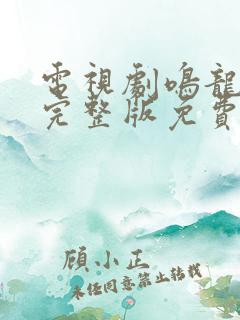 電視劇鳴龍
完整版免費
顧小正
未经同意禁止转载